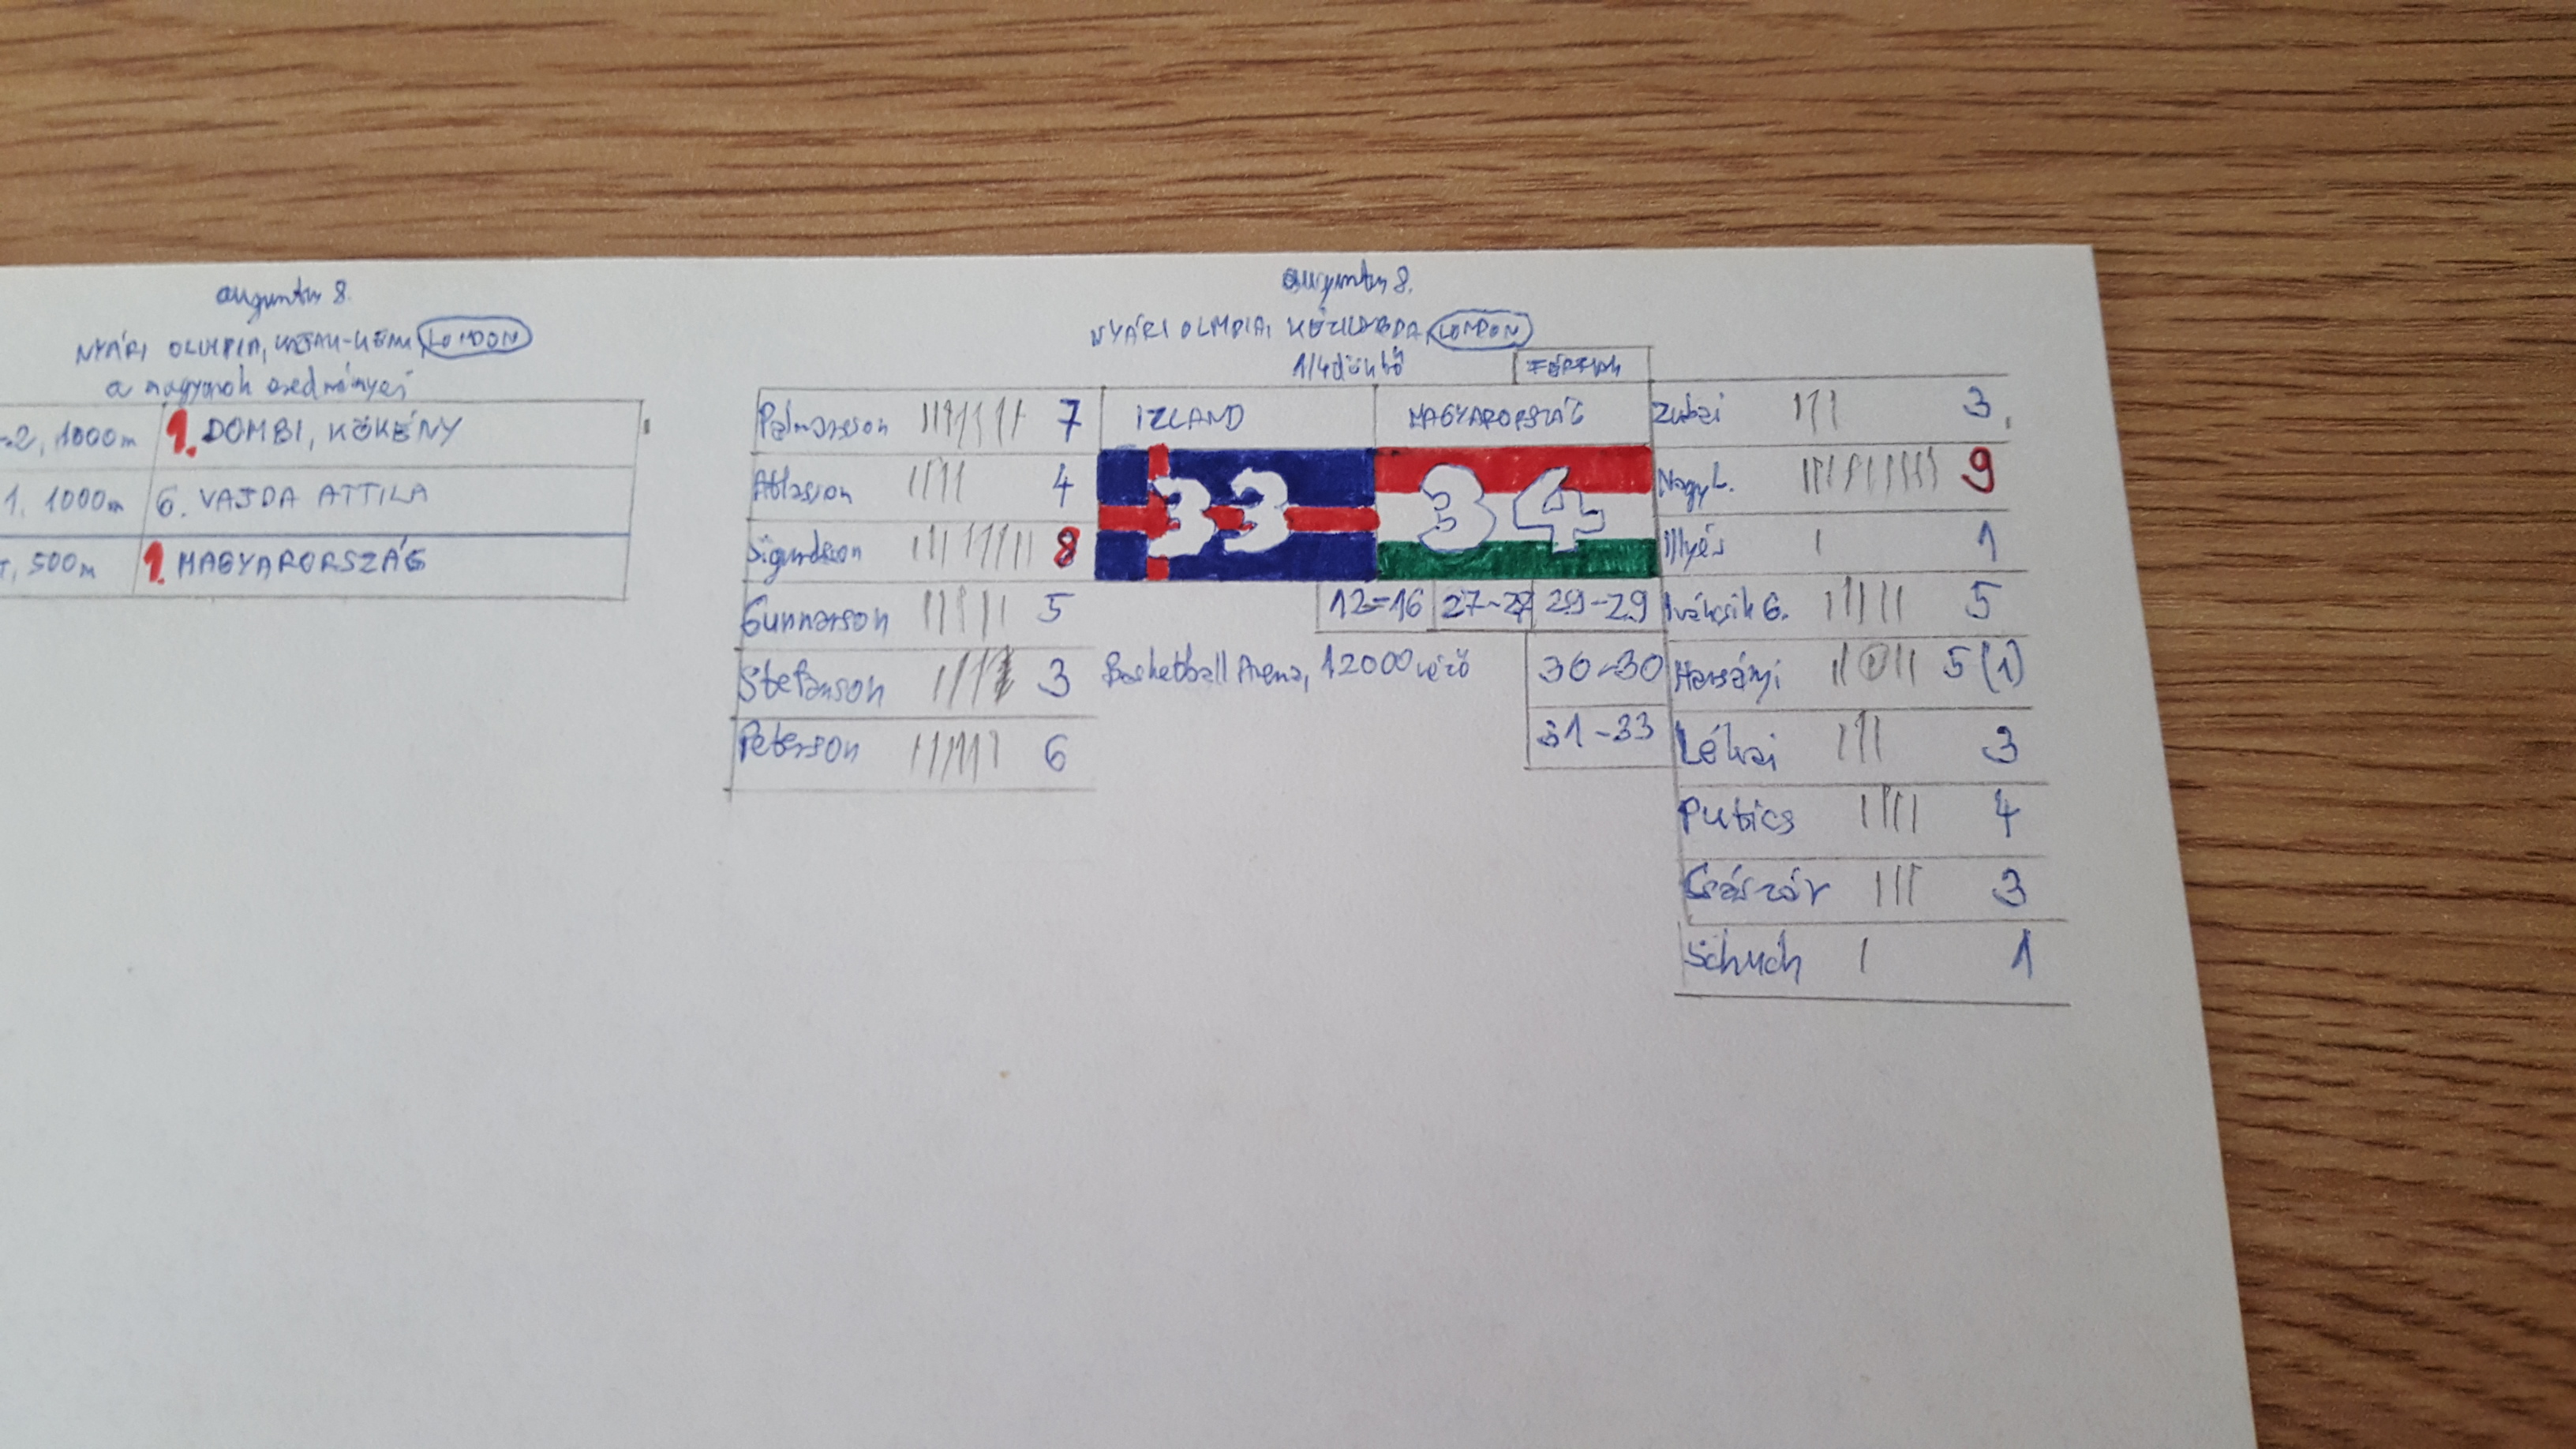 augusztus 8.
NYÁRI OLIMPIA, KAJAK-KENU, LONDON
a magyarok eredményei
-2, 1000m 1. DOMBI, KÖKÉNY
1, 1000m 6. VAJDA ATTILA
500m 1. MAGYARORSZÁG
augusztus 8.
NYÁRI OLIMPIA, KÉZILABDA, LONDON
1/4 döntő FÉRFIAK
IZLAND MAGYARORSZÁG
33 34
12-16 27-27 29-29
30-30
31-33
Basketball Arena, 12000 néző
Palmarsson 7
Atlason 4
Sigurdsson 8
Gunnarson 5
Stefanson 3
Peterson 6
Zubai 3
Nagy L. 9
Illyés 1
Iváncsik G. 5
Harsányi 5 (1)
Lékai 3
Putics 4
Császár 3
Schuch 1